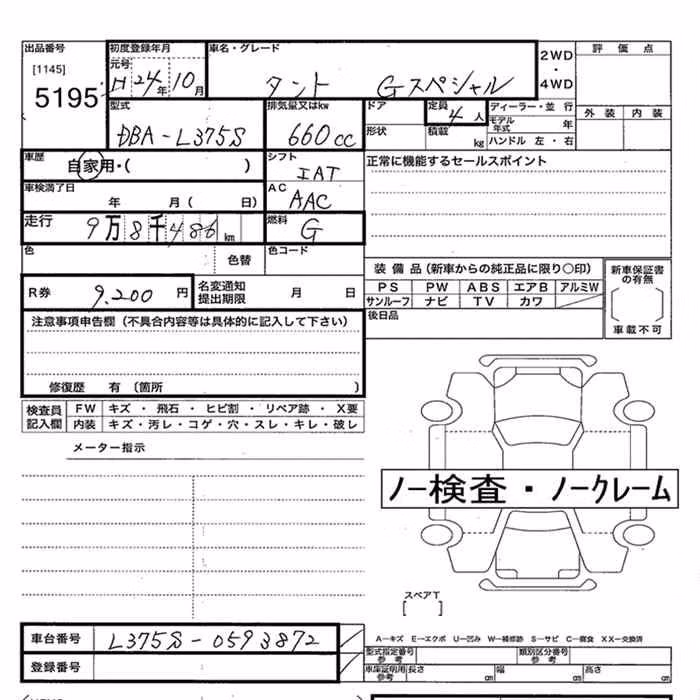 出品番号 初度登録年月 車名・グレード 2WD・4WD 評価点
[1145] 元号
5195 H24年10月 タント Gスペシャル
型式 排気量又はkw ドア 定員 ディーラー・並行 外装 内装
DBA-L375S 660cc 4人 モデル年式 年
形状 積載 kg ハンドル 左・右
車歴 自家用・( ) シフト IAT 正常に機能するセールスポイント
車検満了日 年 月( 日) AC AAC
走行 9万8千486km 燃料 G
色 色替 色コード
装備品(新車からの純正品に限り○印) 新車保証書の有無
R券 9,200円 名変通知提出期限 月 日 PS PW ABS エアB アルミW
サンルーフ ナビ TV カワ
注意事項申告欄(不具合内容等は具体的に記入して下さい) 後日品 車載不可
修復歴 有(箇所 )
検査員記入欄 FW キズ・飛石・ヒビ割・リペア跡・X要
内装 キズ・汚レ・コゲ・穴・スレ・キレ・破レ
メーター指示
ノー検査・ノークレーム
スペアT
[ ]
車台番号 L375S-0593872 A−キズ E−エクボ U−凹み W−補修跡 S−サビ C−腐食 XX−交換済
登録番号 型式指定番号 参考 類別区分番号 参考
車庫証明用 参考 長さ cm 幅 cm 高さ cm